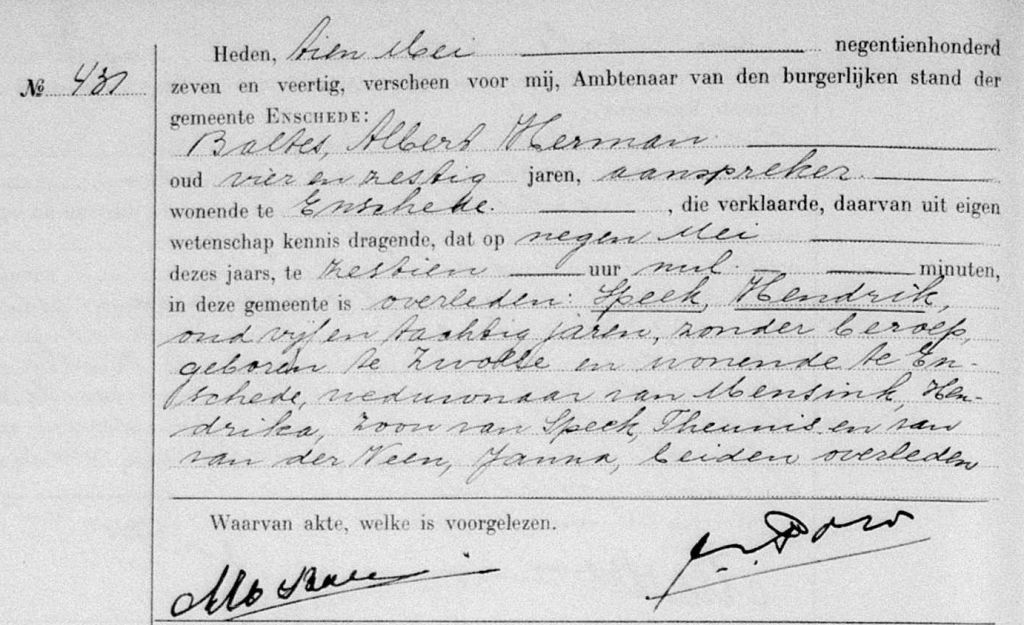 Heden, tien Mei negentienhonderd
№ 431
zeven en veertig, verscheen voor mij, Ambtenaar van den burgerlijken stand der
gemeente ENSCHEDE:
Baltes, Albert Herman
oud vier en zestig jaren, aanspreker
wonende te Enschede. , die verklaarde, daarvan uit eigen
wetenschap kennis dragende, dat op negen Mei
dezes jaars, te zestien uur nul minuten,
in deze gemeente is overleden: Speek, Hendrik,
oud vijf en tachtig jaren, zonder beroep,
geboren te Zwolle en wonende te En-
schede, weduwnaar van Mensink, Hen-
drika, zoon van Speek, Theunis en van
van der Veen, Janna, beiden overleden
Waarvan akte, welke is voorgelezen.